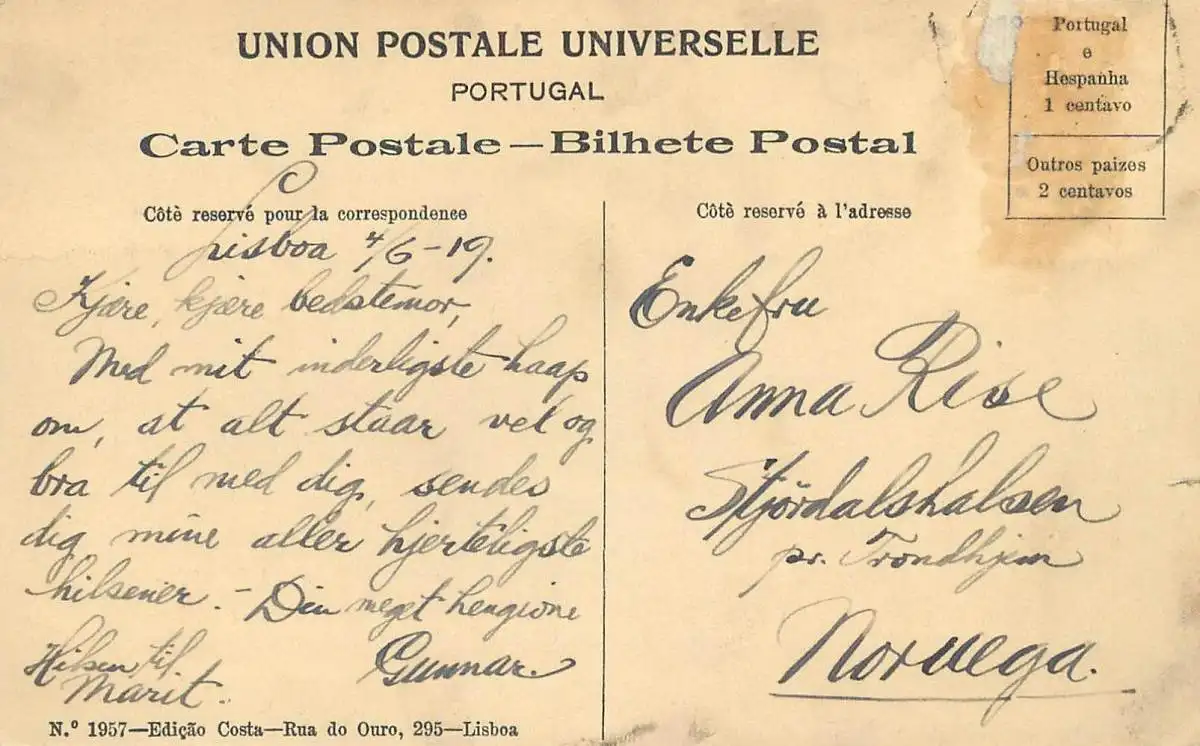 UNION POSTALE UNIVERSELLE
PORTUGAL
Carte Postale—Bilhete Postal
Portugal
e
Hespanha
1 centavo
Outros paizes
2 centavos
Côtè reservé pour la correspondence
Lisboa 4/6-19.
Kjære, kjære bedstemor,
Med mit inderligste haap
om, at alt staar vel og
bra til med dig, sendes
dig mine aller hjerteligste
hilsener. - Din meget hengivne
Gunnar.
Hilsen til
Marit.
Côtè reservé à l'adresse
Enkefru
Anna Rise
Stjördalshalsen
pr. Trondhjem
Noruega.
N.º 1957—Edição Costa—Rua do Ouro, 295—Lisboa